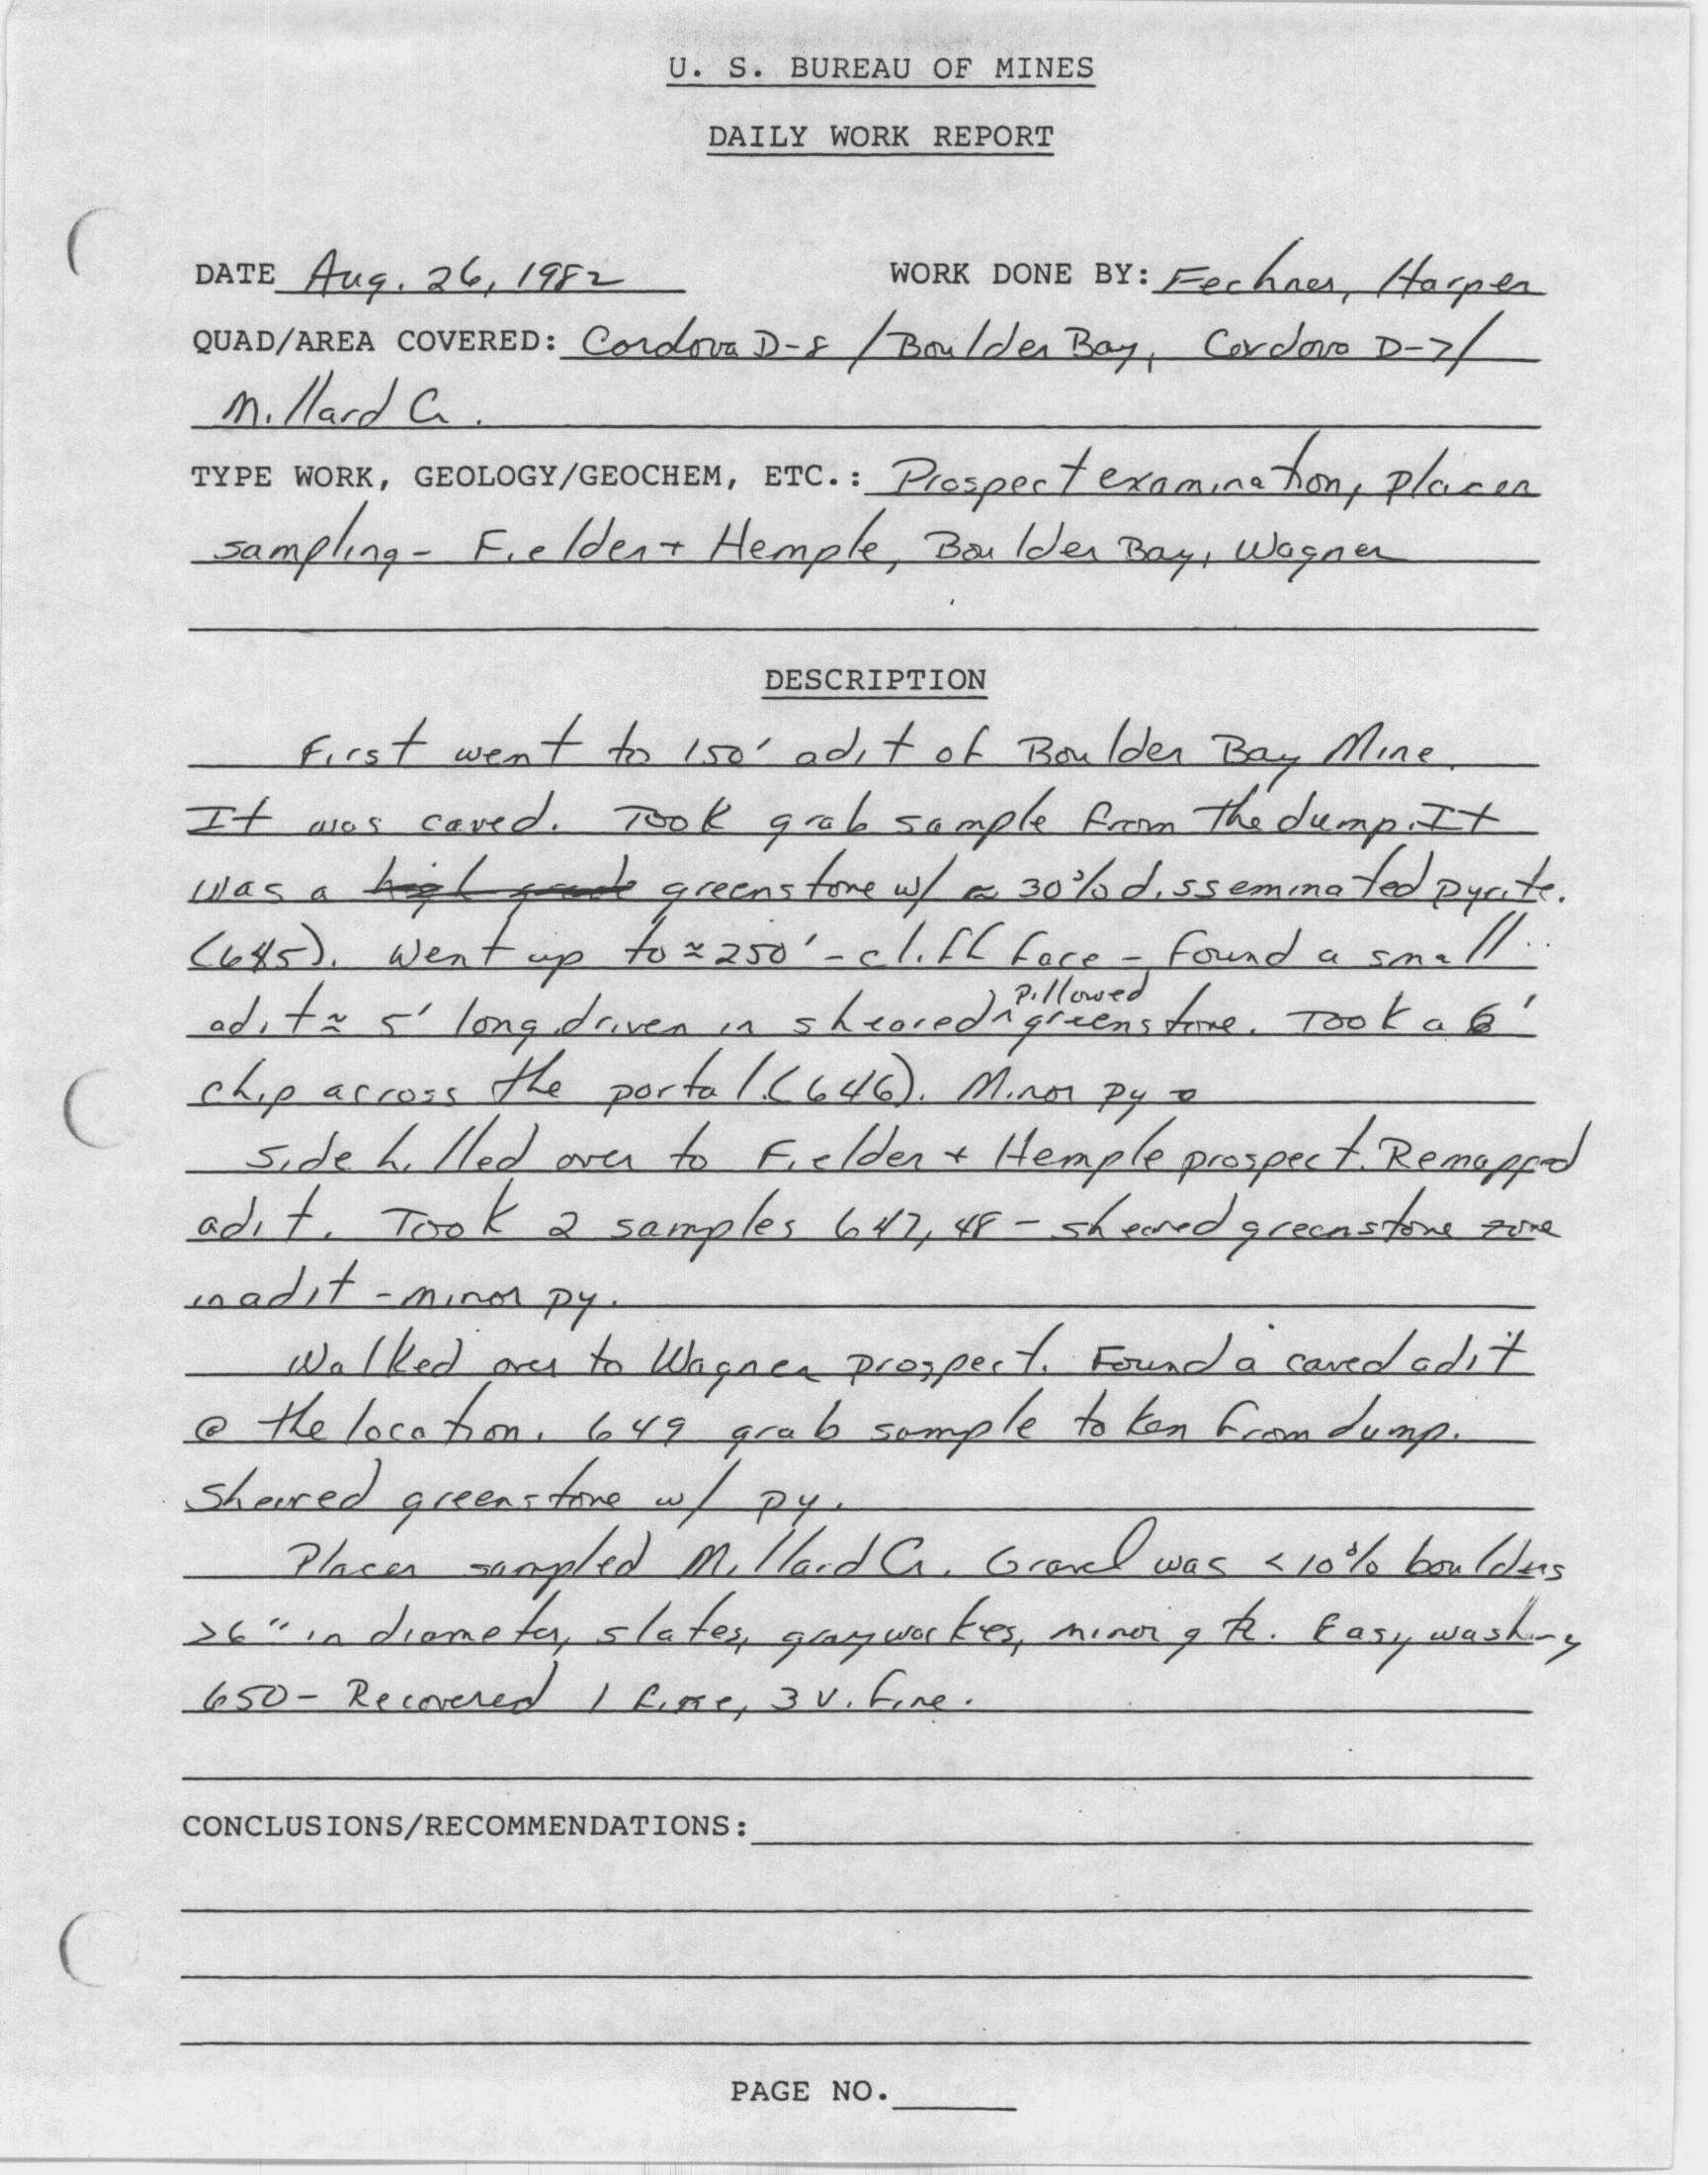 U. S. BUREAU OF MINES
DAILY WORK REPORT
DATE Aug. 26, 1982 WORK DONE BY: Fechner, Harper
QUAD/AREA COVERED: Cordova D-8 / Boulder Bay, Cordova D-7/
Millard Cr.
TYPE WORK, GEOLOGY/GEOCHEM, ETC.: Prospect examination, placer
sampling - Fielder + Hemple, Boulder Bay, Wagner
DESCRIPTION
First went to 150' adit of Boulder Bay Mine.
It was caved. Took grab sample from the dump. It
was a high grade greenstone w/ ≈ 30% disseminated pyrite.
(645). Went up to ≈ 250' - cliff face - found a small
adit ≈ 5' long driven in sheared, ^ pillowed greenstone. Took a 6'
chip across the portal. (646). Minor py
Side hilled over to Fielder + Hemple prospect. Remapped
adit. Took 2 samples 647, 48 - sheared greenstone zone
in adit - minor py.
Walked over to Wagner prospect. Found a caved adit
@ the location. 649 grab sample taken from dump.
Sheared greenstone w/ py.
Placer sampled Millard Cr. Gravel was < 10% boulders
>6" in diameter, slates, graywackes, minor qtz. Easy washing
650 - Recovered 1 fine, 3 v. fine.
CONCLUSIONS/RECOMMENDATIONS:
PAGE NO.